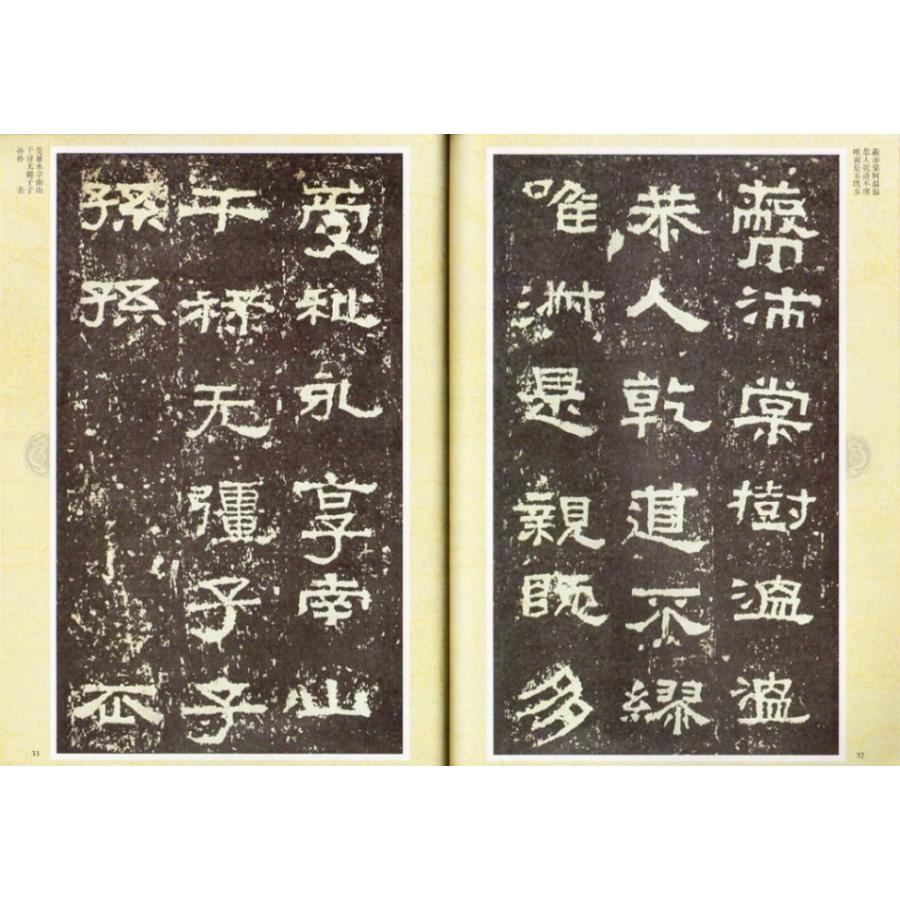 蔽沛棠树温温
恭人乾道不缪
唯淑是亲既多
蔽沛棠樹温温
恭人乾道不繆
唯淑是親既多
32
受祉永享南山
干禄无疆子子
孫孫
受祉永享南山
干禄无疆子子
孙孙
33